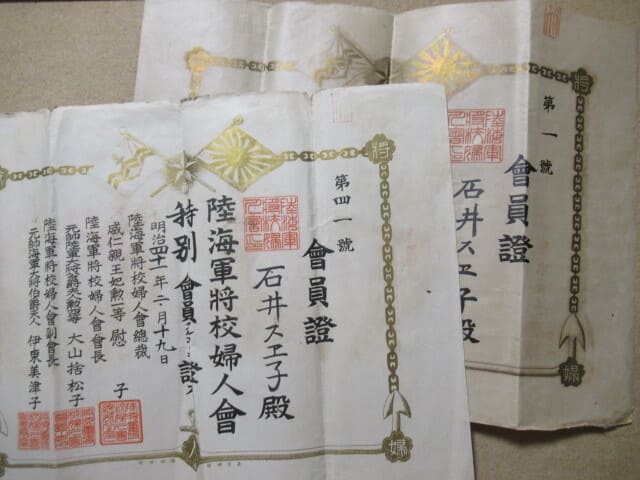 會員證
第四一號
石井スヱ子殿
陸海軍將校婦人會
特別會員
證
明治四十一年六月十九日
陸海軍將校婦人會總裁
威仁親王妃勲一等慰子
陸海軍將校婦人會會長
大山捨松子
陸海軍將校婦人會副會長
元帥海軍大將伯爵夫人 伊東美津子
將
婦
第一號
會員證
石井スヱ子殿
將
婦